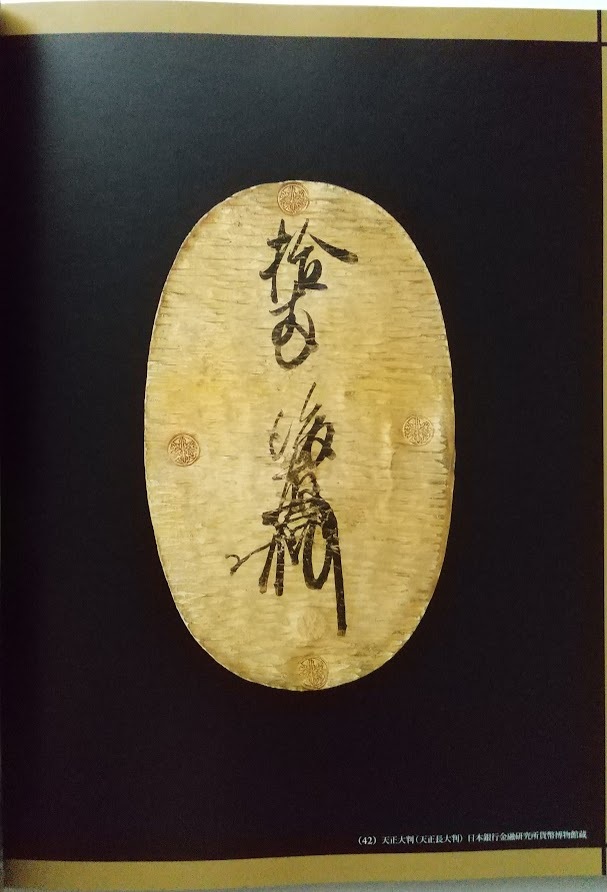 拾両
後藤
(42) 天正大判(天正長大判) 日本銀行金融研究所貨幣博物館蔵